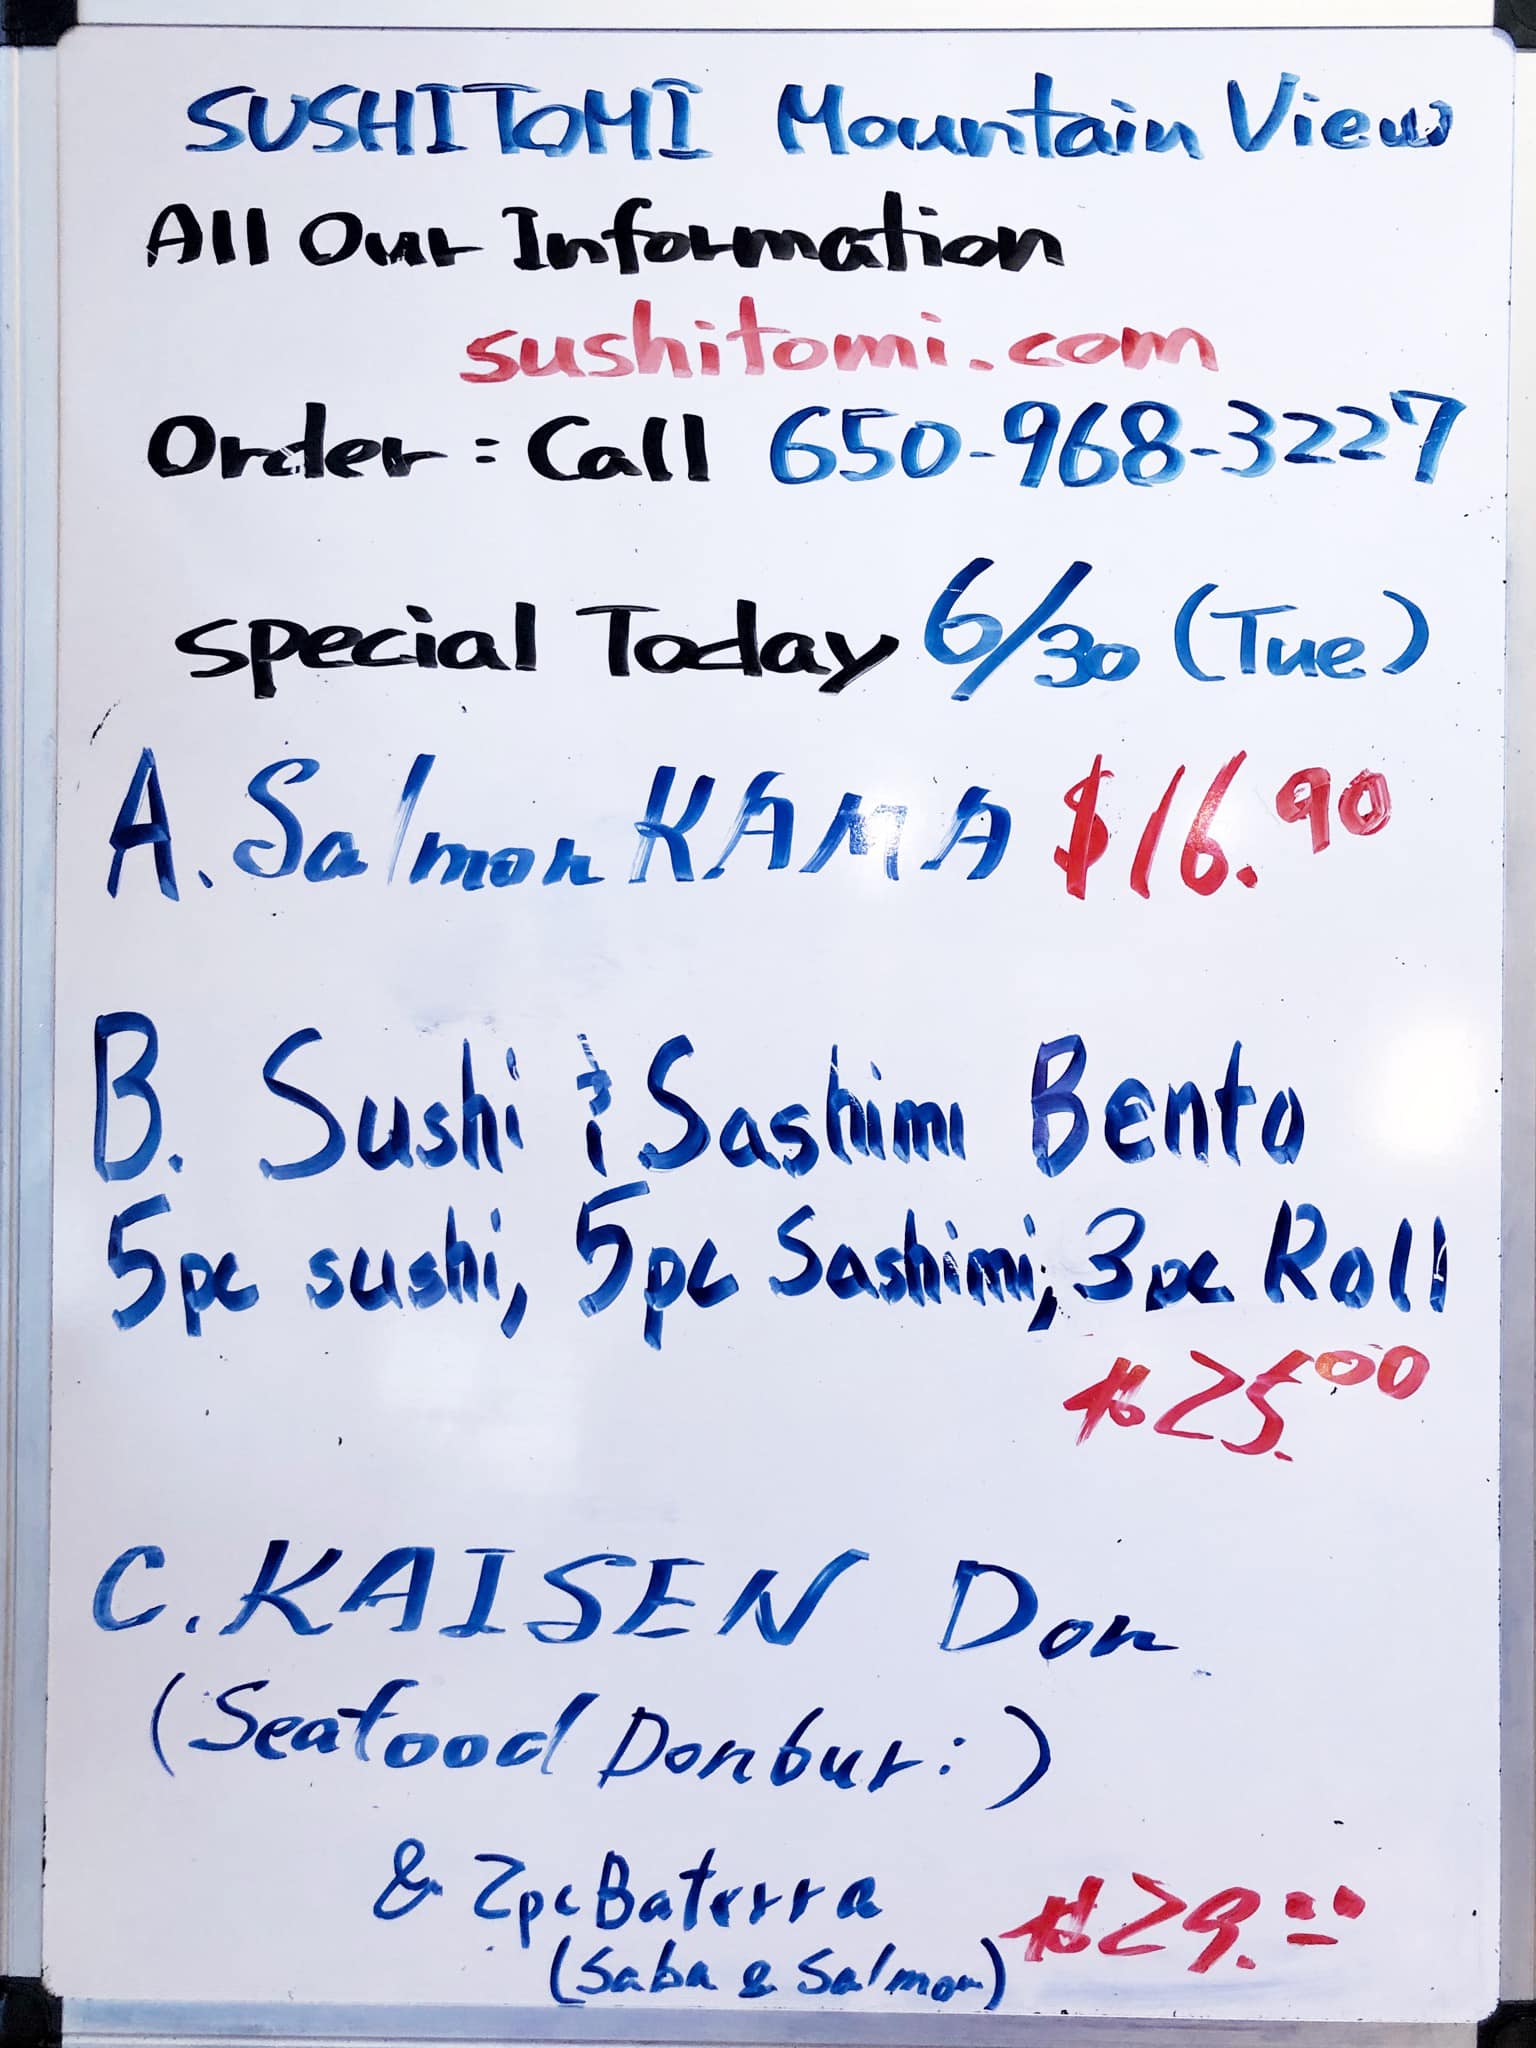 SUSHITOMI Mountain View
All Our Information
sushitomi.com
Order: Call 650-968-3227
special Today 6/30 (Tue)
A. Salmon KAMA $16.90
B. Sushi & Sashimi Bento
5pc sushi, 5pc Sashimi, 3pc Roll
$25.00
C. KAISEN Don
(Seafood Donbur:)
& 2pc Baterra
(Saba & Salmon) $29.00